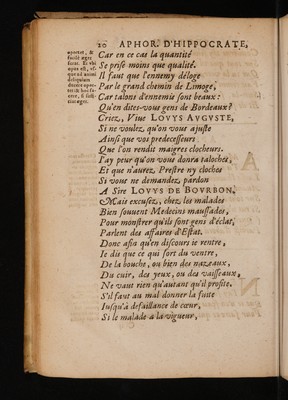 20 APHOR. D'HIPPOCRATE,
oportet, &
facilè æger
ferat. Et vbi
opus est, vs-
que ad animi
deliquium
ducere opor-
tet & hoc fa-
cere, si suffi-
ciat æger.
Car en ce cas la quantité
Se prise moins que qualité.
Il faut que l'ennemy déloge
Par le grand chemin de Limoge,
Car talons d'ennemis sont beaux:
Qu'en dites-vous gens de Bordeaux?
Criez, Viue LOVYS AVGVSTE,
Si ne voulez, qu'on vous ajuste
Ainsi que vos predecesseurs
Que l'on rendit maigres clocheurs.
I'ay peur qu'on vous donra taloches,
Et que n'aurez, Prestre ny cloches
Si vous ne demandez, pardon
A Sire LOVYS DE BOVRBON,
Mais excusez, chez les malades
Bien souuent Medecins maussades,
Pour monstrer qu'ils sont gens d'éclat,
Parlent des affaires d'Estat.
Donc afin qu'en discours ie rentre,
Ie dis que ce qui sort du ventre,
De la bouche, ou bien des nazeaux,
Du cuir, des yeux, ou des vaisseaux,
Ne vaut rien qu'autant qu'il profite.
S'il faut au mal donner la fuite
Iusqu'à defaillance de cœur,
Si le malade a la vigueur,